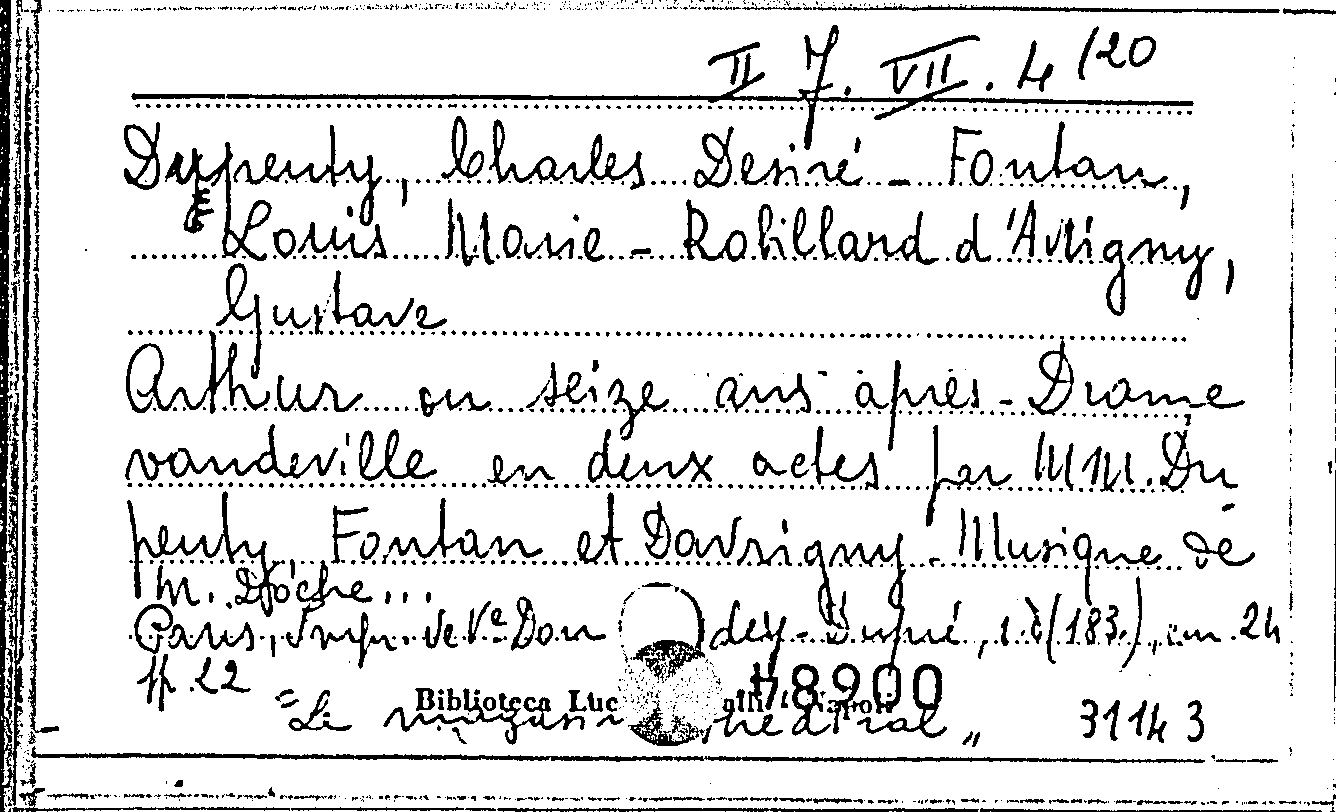 II 7. VII. 4/20
Dupeuty, Charles Desiré - Fontan,
Louis Marie - Robillard d'Avrigny,
Gustave
Arthur ou seize ans après - Drame
vaudeville en deux actes par MM. Du
peuty, Fontan et Davrigny - Musique de
M. Doche...
Paris, Impr. de Ve Don dey-Dupré, s.d (183.), cm. 24
pp. 22
48900
Biblioteca Luc
"Le magasin théâtral" 31143